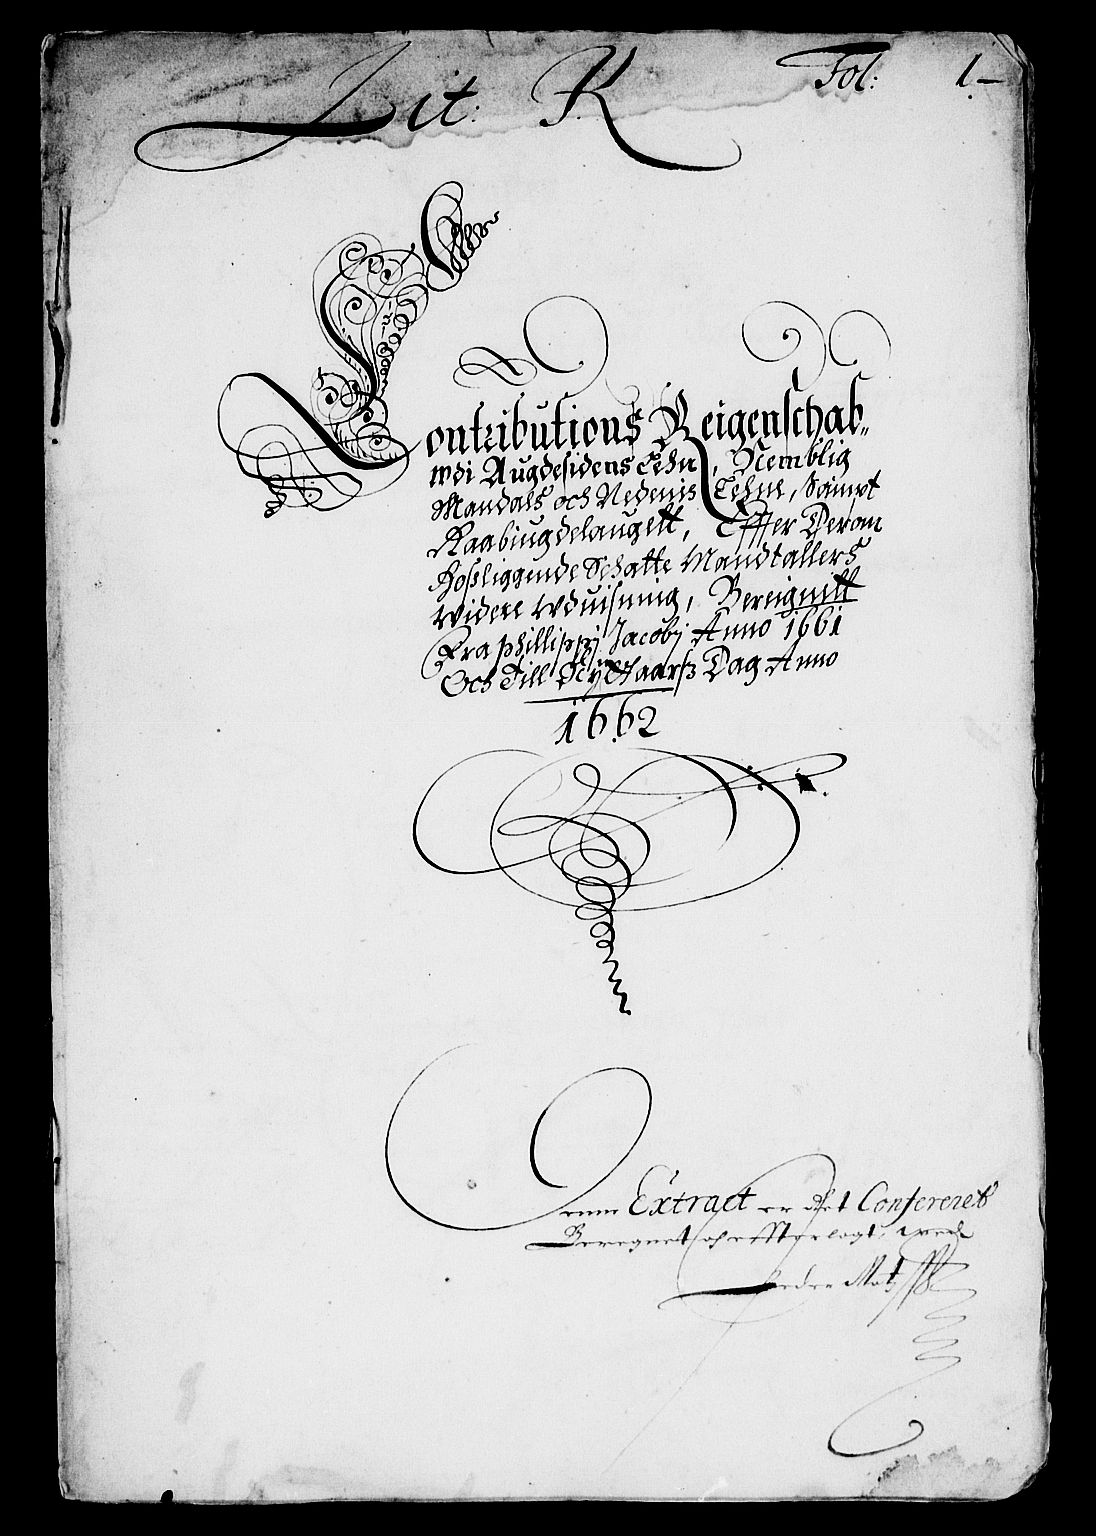 Lit: K Fol: 1.
Contributions Reigenschab,,
wdi Augdesidens Lehn, Nemblig
Mandals och Nedenis Lehne, Sampt
Raabiugdelaugett, Effter Deran
hosliggende Schatte Mandtallers
widere wduisning, Bereignitt
Fra phillippj Jacobj Anno 1661
Och Till Nÿ Aaarss Dag Anno
1662
Denne Extract er ret Confereret
Beregnet och efterlagt, med
Peder Mat